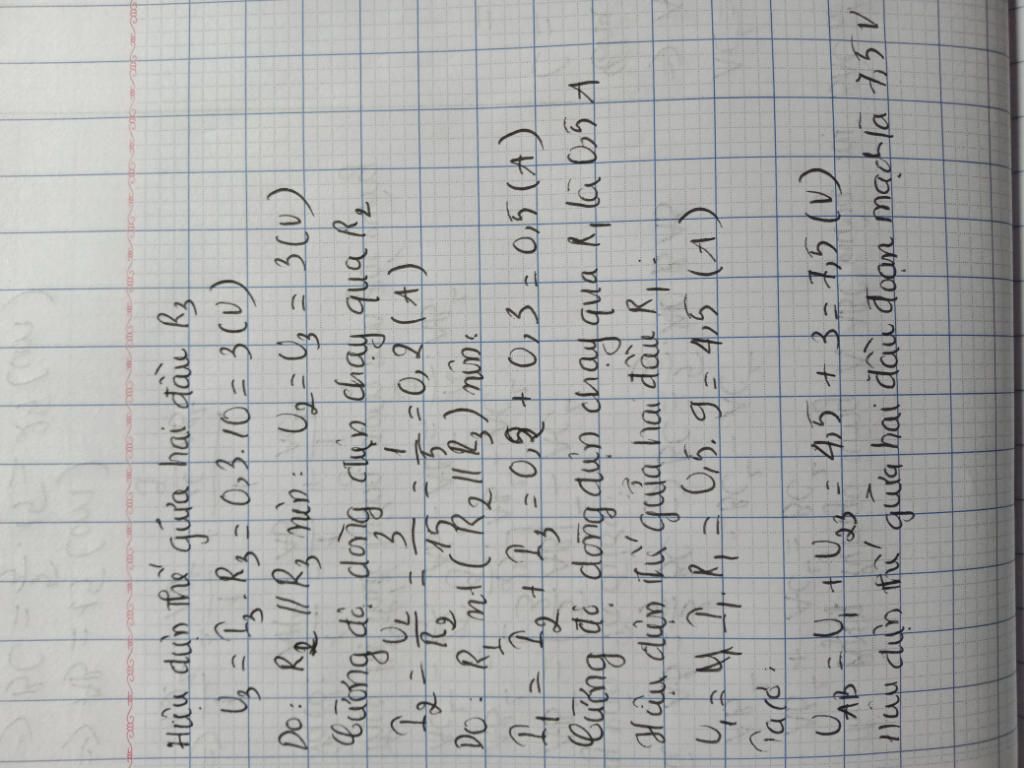 Hiệu điện thế giữa hai đầu R3
U3 = I3 . R3 = 0,3 . 10 = 3 (V)
Do: R2 // R3 nên: U2 = U3 = 3 (V)
Cường độ dòng điện chạy qua R2
I2 = U2/R2 = 3/15 = 1/5 = 0,2 (A)
Do: R1 nt (R2 // R3) nên:
I1 = I2 + I3 = 0,2 + 0,3 = 0,5 (A)
Cường độ dòng điện chạy qua R1 là 0,5 A
Hiệu điện thế giữa hai đầu R1:
U1 = I1 . R1 = 0,5 . 9 = 4,5 (A)
Ta có:
UAB = U1 + U23 = 4,5 + 3 = 7,5 (V)
Hiệu điện thế giữa hai đầu đoạn mạch là 7,5 V